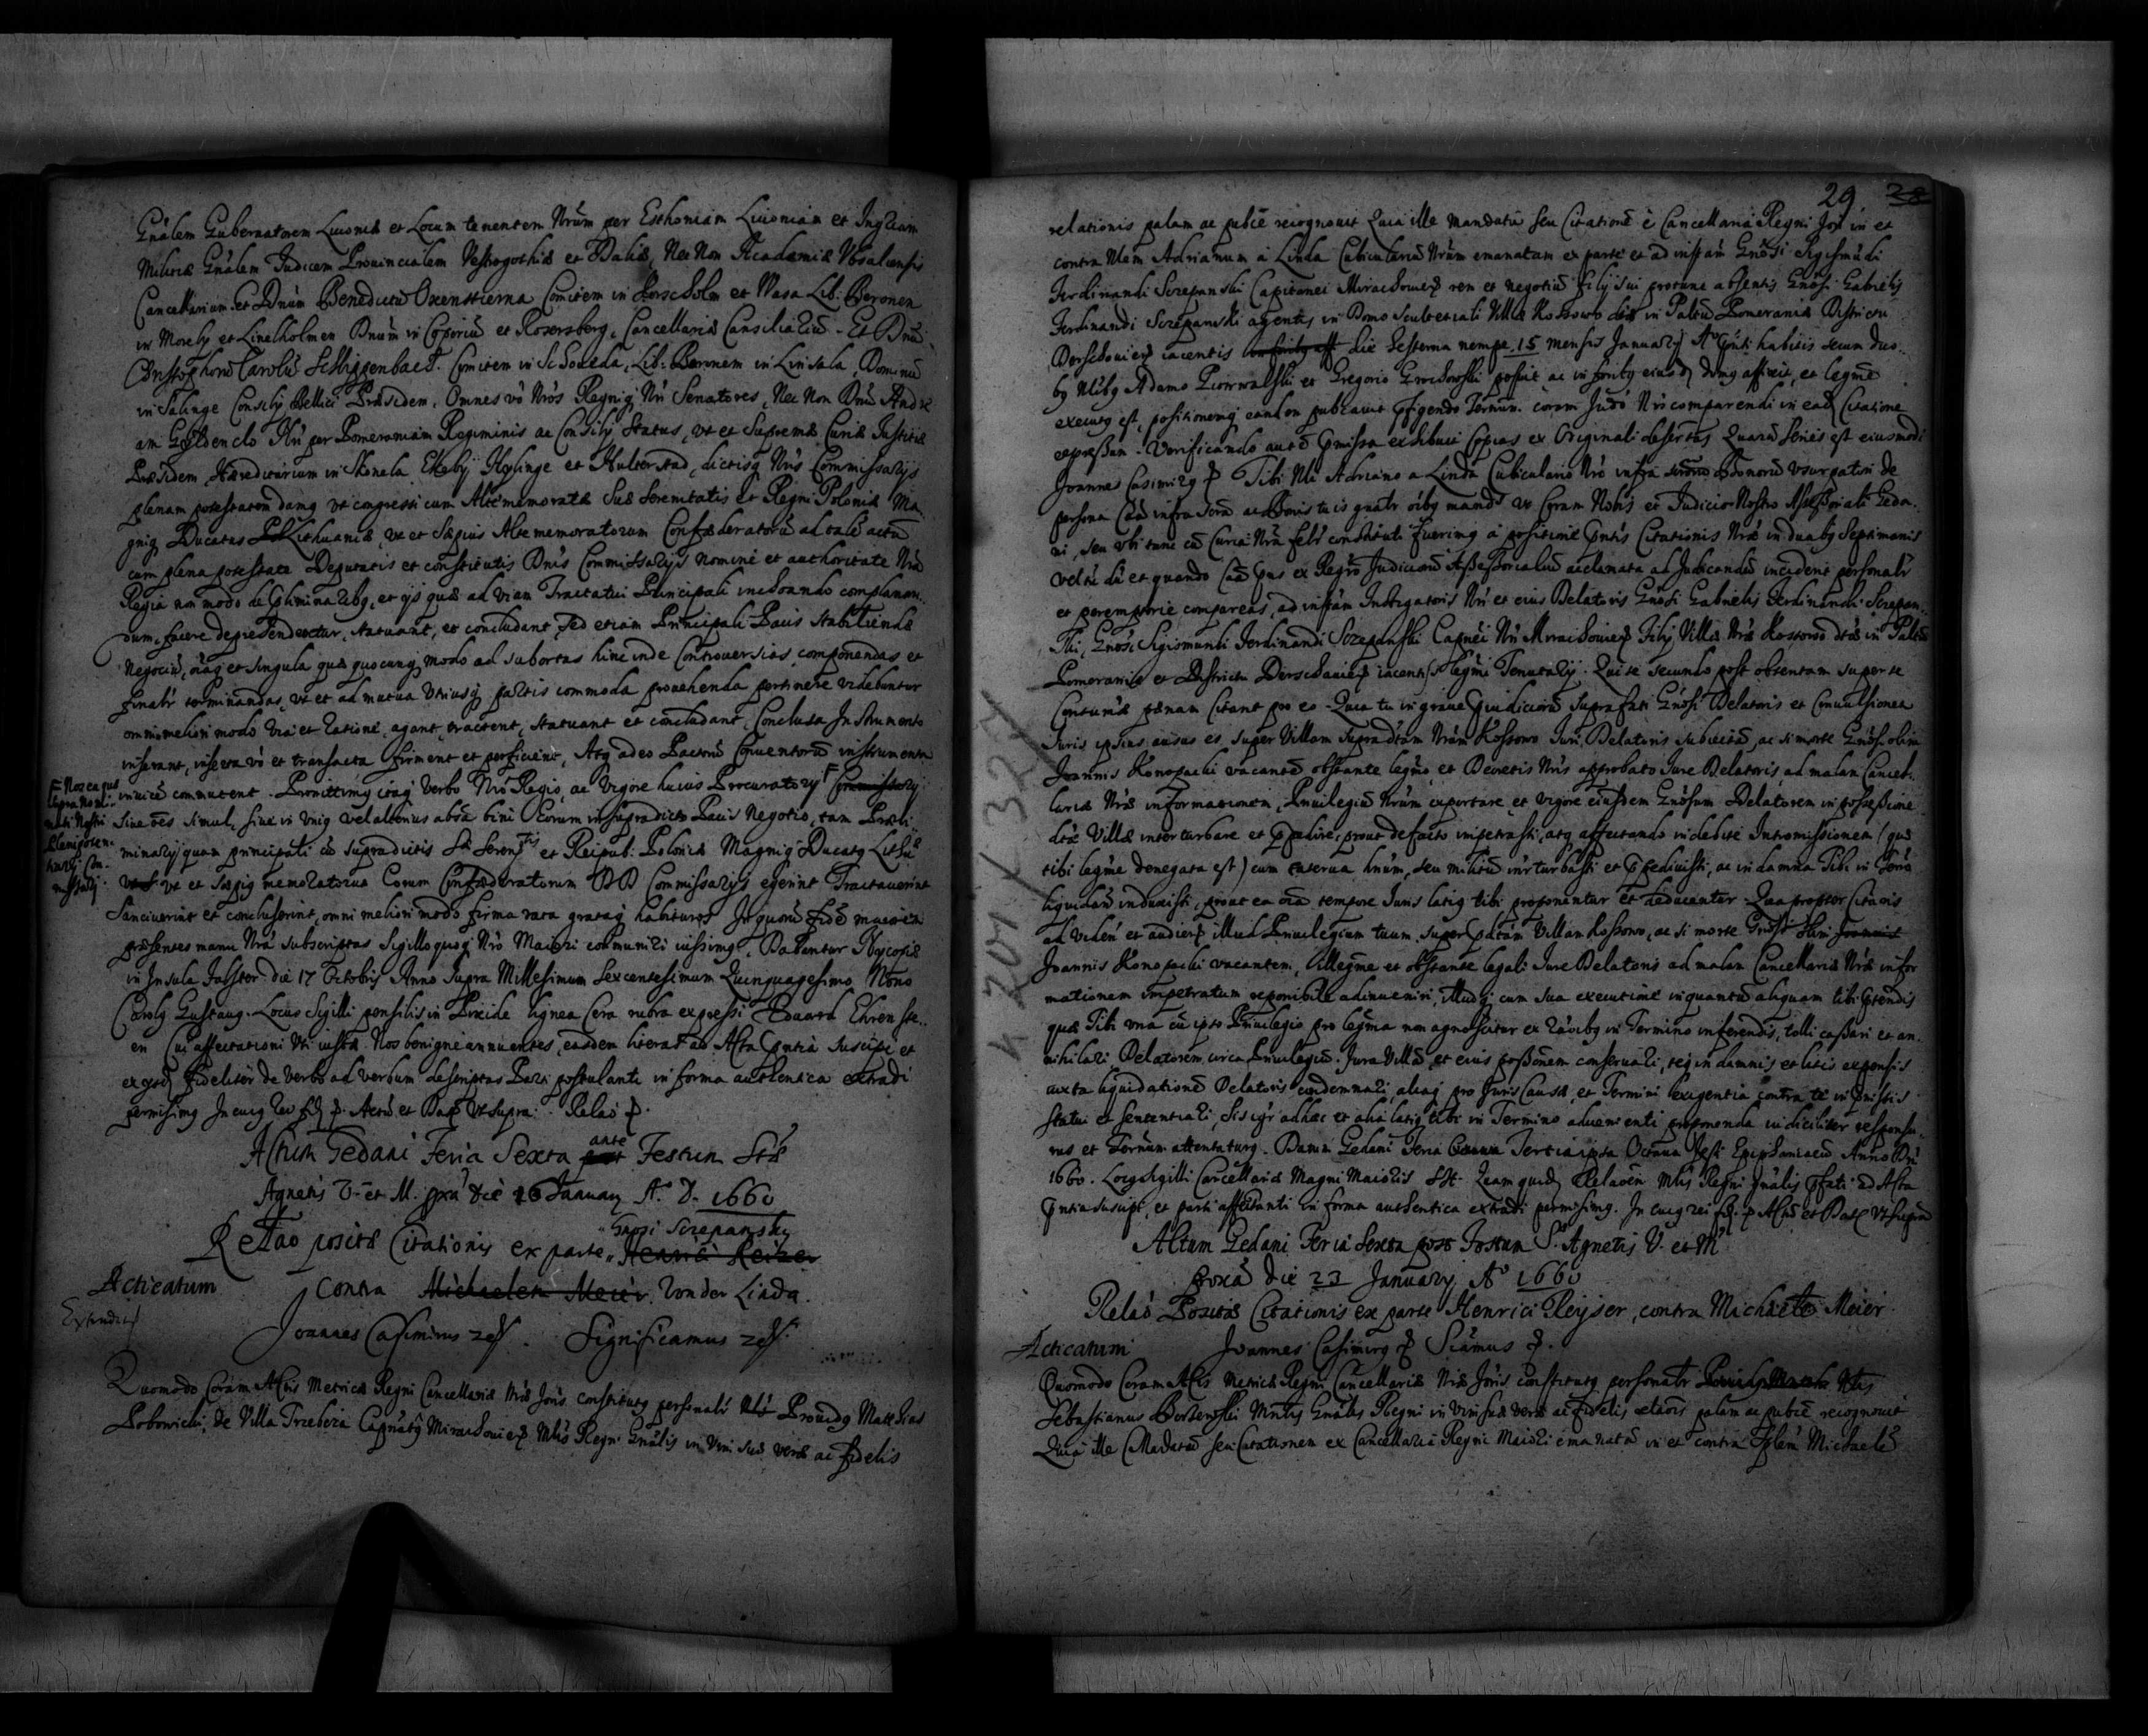 Gnãlem Gubernatorem Livoniæ et Locum tenentem Nrũm per Esthoniam Livoniam et Ingriam
Militiæ Gnãlem Judicem Provincialem Vestrogothiæ et Daliæ, Nec Non Academiæ Upsaliensis
Cancellarium. et Dnũm Benedictũ Oxenstierna Comitem in Korscholm et Wasa Lib: Beronem
in Moreby et Lineholmen Dnum in Caporiũ et Rosersberg, Cancellariæ Consiliariũ. Et Dnũ
Christophorũ Carolũ Schlippenbach. Comitem in Schoueda, Lib: Beronem in Linsala Dominũ
in Salinge Consilÿ Bellici Præsidem, Omnes vò Nrõs Regniq Nri Senatores, Nec Non Dnũ Andre
am Gyldenclo Nri per Pomeraniam Regiminis ac Consilÿ Status, vt et Supremæ Curiæ Justitiæ
Præsidem Hæreditarium in Skenela Ekebÿ Hylinge et Hulterstad, dictisq Nris Commissarÿs
plenam potestatem damq vt congressi cum Altememoratæ Suæ Serenitatis et Regni Poloniæ Ma
gniq Ducatus Lithuaniæ, vt et Sæpius Altememoratorum Confœderatorũ ad talẽ actũ
cum plena potestate Deputatis et constitutis Dnis Commissarÿs nomine et authoritate Nra
Regia non modo de Pliminaribq, et ÿs quæ ad viam Tractatui Principali inchoando complanan
dum facere deprehendentur, statuant, et concludant, Sed etiam Principali Pacis Stabiliendæ
Negociũ, oĩaq et singula quæ quocunq modo ad subortas hinc inde Controversias componendas et
finalr terminandas, vt et ad mutua vtriusq partis commoda provehenda pertinere videbuntur
omni meliori modo via et ratione, agant, tractent, statuant et concludant, Conclusa Instrumento
inserant, inserta vò et transacta firment et perficient, Atq adeo Pactorũ Conventorũ instrumenta
invicẽ commutent. Promittimq itaq Verbo Nrõ Regio, ac Vigore huius Procuratorÿ F Commissarÿ
F Nos ea quæ
supra Nomi
nati Nostri
Plenipoten
tiarÿ Com
missarÿ
sive oẽs simul, sive in vniq vel alterius absã bini Eorum in supradicto Pacis Negotio, tam Præli
minarÿ quam principali cũ supradictis Sæ Serenttis et Reipub: Polonicæ Magniq Ducatq Lithũ
vt et Sæpiq memoratorum Eorum Confœderatorum DD Commissarÿs egerint Tractaverint
Sanciverint et concluserint, omni meliori modo firma rata grataq habituros In quorũ fidẽ maiorẽ
præsentes manu Nra subscriptas Sigilloquoq Nrõ Maiori communiri iussimq. Dabantur Nycopiæ
in Insula Falster die 17 Octobris Anno Supra Millesimum Sexcentesimum Quinquagesimo Nono
Carolq Gustavq. Locus Sigilli pensilis in Pixide lignea Cera rubra expressi Eduard Ehrenste
en Cui affectationi vti iustæ Nos benigne annuentes, easdem literas ad Acta Pntia suscipi et
exÿsd fideliter de verbo ad verbum descriptas Parti postulanti in forma authentica extradi
permisimq In cuiq rei fid p. Actũ et Dat vt supra. Relaõ p.
Actum Gedani Feria Sexta ante Festum Stæ
Agnetis V. et M. pxa die 16 January A. D. 1660
Relaõ positæ Citationis ex parte Gnosi Szczepansky Henrici Keiser
Acticatum contra Michaelem Meier. Von der Linda.
Extradit
Joannes Casimirus etc. Significamus etc.
Quomodo Coram Actis Metricæ Regni Cancellariæ Nræ Joris constitutq personalr Providq Matthias
Bobowicki, de Villa Trzebcza Capnatq Mirachoviens Mlis Regni Gnãlis in Vim suæ veræ ac fidelis
29 28
relationis palam ac publcẽ recognovit Quia ille mandatũ seu Citationẽ è Cancellaria Regni Jori in et
contra Nlem Adrianum à Linda Cubiculariũ Nrũm emanatam ex parte et ad instãm Gnosi Sigismũdi
Ferdinandi Szczepanski Capitanei Mirachoviens rem et negotiũ filÿ sui protunc absentis Gnosi Gabrielis
Ferdinandi Szczepanski agentis in Domo Scultetiali Villæ Kossowo dctæ in Paltũ Pomeraniæ Districtu
Derschoviens iacentis die hesterna nempe 15 mensis January Aõ Pnti habitis secum duo
bq Nlibq Adamo Piorowalski et Gregorio Grochowski posuit ac in foribq eiusd domq affixit, et legmẽ
executq est, positionemq eandem publcavit pfigendo Termin. coram Judõ Nrõ comparendi in ead Citatione
expressum. Verificando autẽ Pmissa exhibuit Copias ex Originali descriptas Quarũ Series est eiusmodi
Joannes Casimirq p Tibi Nli Adriano a Linda Cubiculario Nrõ infra Bonorũ vsurpatori de
persona Cãa infra scra ac Bonis tuis gnalr oibq mands vt Coram Nobis et Judicio Nostro Assessoriali Geda
ni, seu vbi tunc cũ Curia Nra felr constituti fuerimq à positione Pntis Citationis Nræ in duabq Septimanis
vel tũ dũ et quando Cãa Pns ex Regro Judiciorũ Assessorialiũ acclamata ad Judicandũ inciderit personalr
et peremptorie compareas, ad instãm Instigatoris Nri et eius Delatoris Gnosi Gabrielis Ferdinandi Szczepan
ski, Gnosi Sigismundi Ferdinandi Szczepanski Capnei Nri Mirachoviens Filÿ Villæ Nræ Kossowo dctæ in Paltũ
Pomeraniæ et Districtu Derschaviens iacentis legmi Tenutarÿ. Qui te secundo post obtentam super te
Contumæ pœnam citant pro eo. Quia tu in grave Pjudiciũ suprafati Gnosi Delatoris et Convulsionem
Juris ipsius ausus es, super Villam supradctam Nram Kossowo Juri Delatoris subiectã, ac si morte Gnosi olim
Joannis Konopacki vacantẽ obstante legmo et Decretis Nris approbato Jure Delatoris ad malam Cancel
lariæ Nræ informationem, Privilegiũ Nrũm exportare et vigore eiusdem Gnosum Delatorem in possessione
dctæ Villæ interturbare et Ppedire, prout de facto impetrasti, atq affectando indebitè Intromissionem (quæ
tibi legme denegata est) cum caterva hnũm, seu militũ inrturbasti et Ppedivisti, ac in damna Sibi in Termo
liquidanda induxisti, prout ea oia tempore Juris latiq tibi proponentur et deducentur. Quapropter citaris
ad vidend et audiend illud Privilegium tuum, super Pdctam Villam Kossowo, ac si morte Gnosi olim Joannis
Joannis Konopacki vacantem, illegmẽ et obstante legali Jure Delatoris ad malam Cancellariæ Nræ infor
mationem impetratum reponibile adinveniri, illudq cum sua executione inquantũ aliquam tibi Ptendis
quæ Tibi vna cũ ipso Privilegio pro legma non agnoscitur ex rãonibq in Termino inferendis, tolli cassari et an
nihilari Delatorem circa Privilegiũ. Jura Villæ et eius possionem conservari, teq in damnis et litis expensis
iuxta liquidationẽ Delatoris condemnari, aliaq pro Juris Causæ, et Termini exigentia contra te in Pmissis
statui et sententiari, Sis igr ad hæc et alia latiq tibi in Termino advenienti proponenda iudicialiter responsu
rus et Terũm attentaturq. Datum Gedani Feria Tertia ipsa Octava Festi Epiphaniarũ Anno Dni
1660. Locq Sigilli Cancellariæ Magni Maioris SSt. Quam quid Relaõem Mlis Regni Gnãlis Pfati ad Acta
Pntia suscipi, et parti affectanti in forma authentica extradi permisimq. In cuiq rei fid. p Actũ et Dat vt supra
Actum Gedani Feria Sexta post Festum S. Agnetis V. et M
proxa die 23 January Aõ 1660
Relaõ Positæ Citationis ex parte Henrici Keyser, contra Michaele Meier
Acticatum Joannes Casimirq p Scamus p.
Quomodo Coram Actis Metricæ Regni Cancellariæ Nræ Joris constitutq personalr Nlis
Sebastianus Borkowski Mnlis Gnãlis Regni in Vim suæ veræ ac fidelis relaõis palam ac publcẽ recognovit
Quia ille Mãdatũ seu Citationem ex Cancellaria Regni Maiori emanatã in et contra Michaelẽ
K 201 / 327